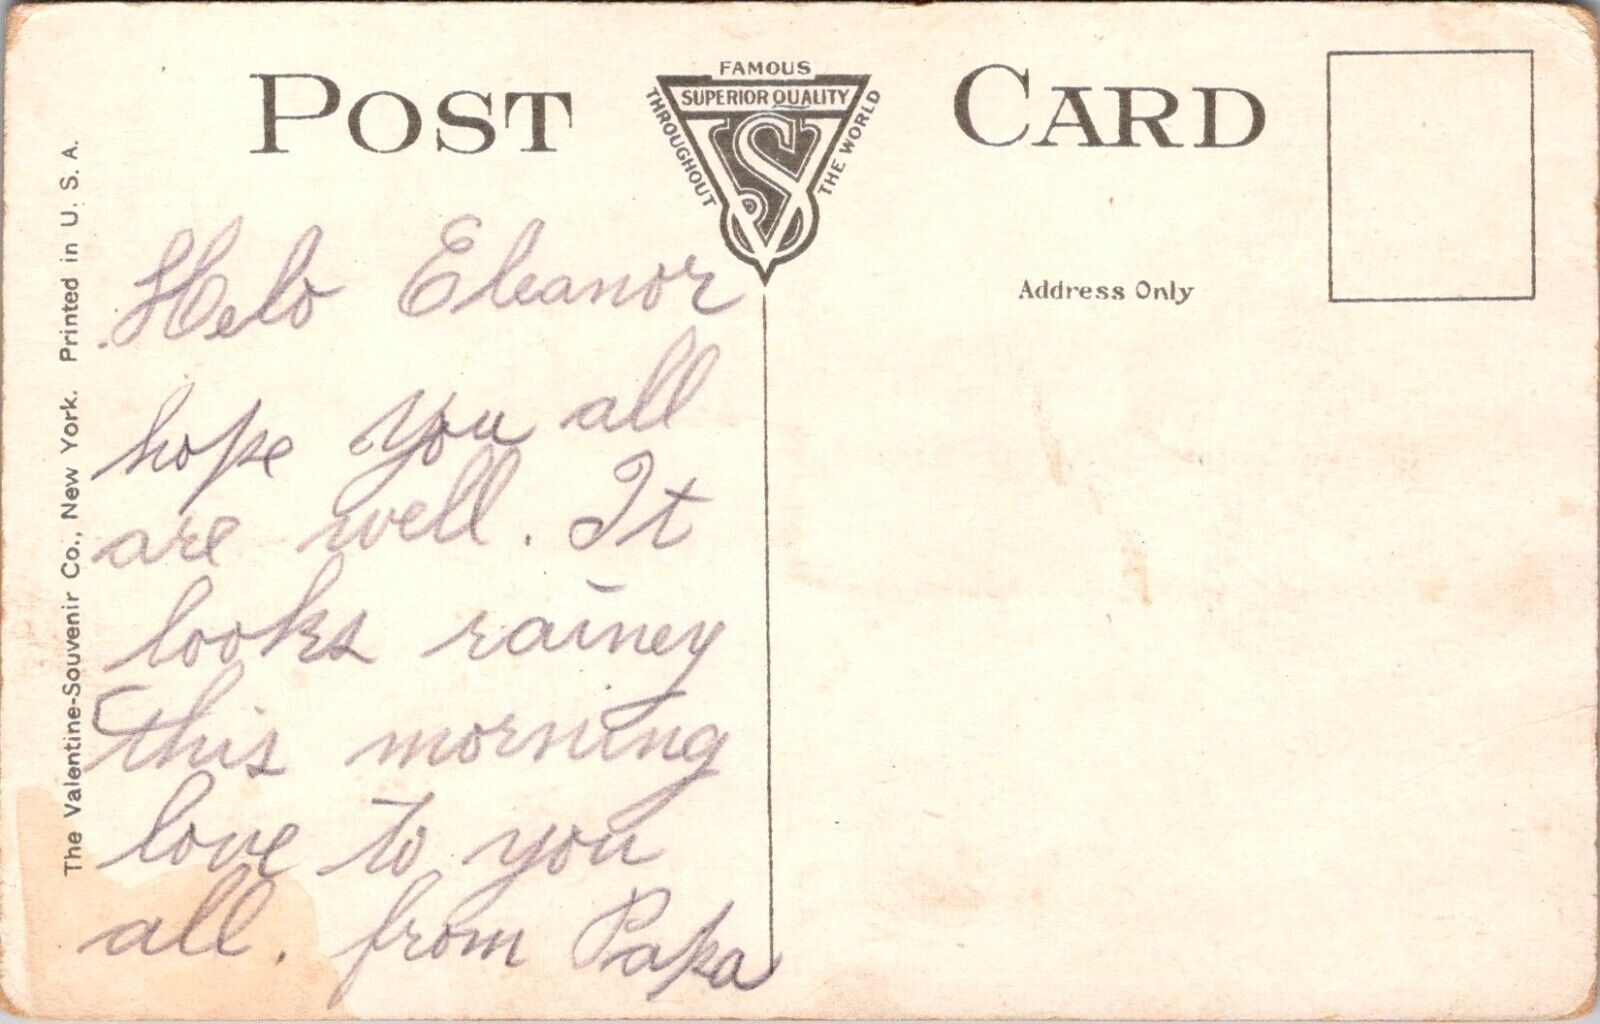 POST CARD
FAMOUS
SUPERIOR QUALITY
THROUGHOUT
THE WORLD
VS
Address Only
The Valentine-Souvenir Co., New York. Printed in U. S. A.
Helo Eleanor
hope you all
are well. It
looks rainey
this morning
love to you
all. from Papa